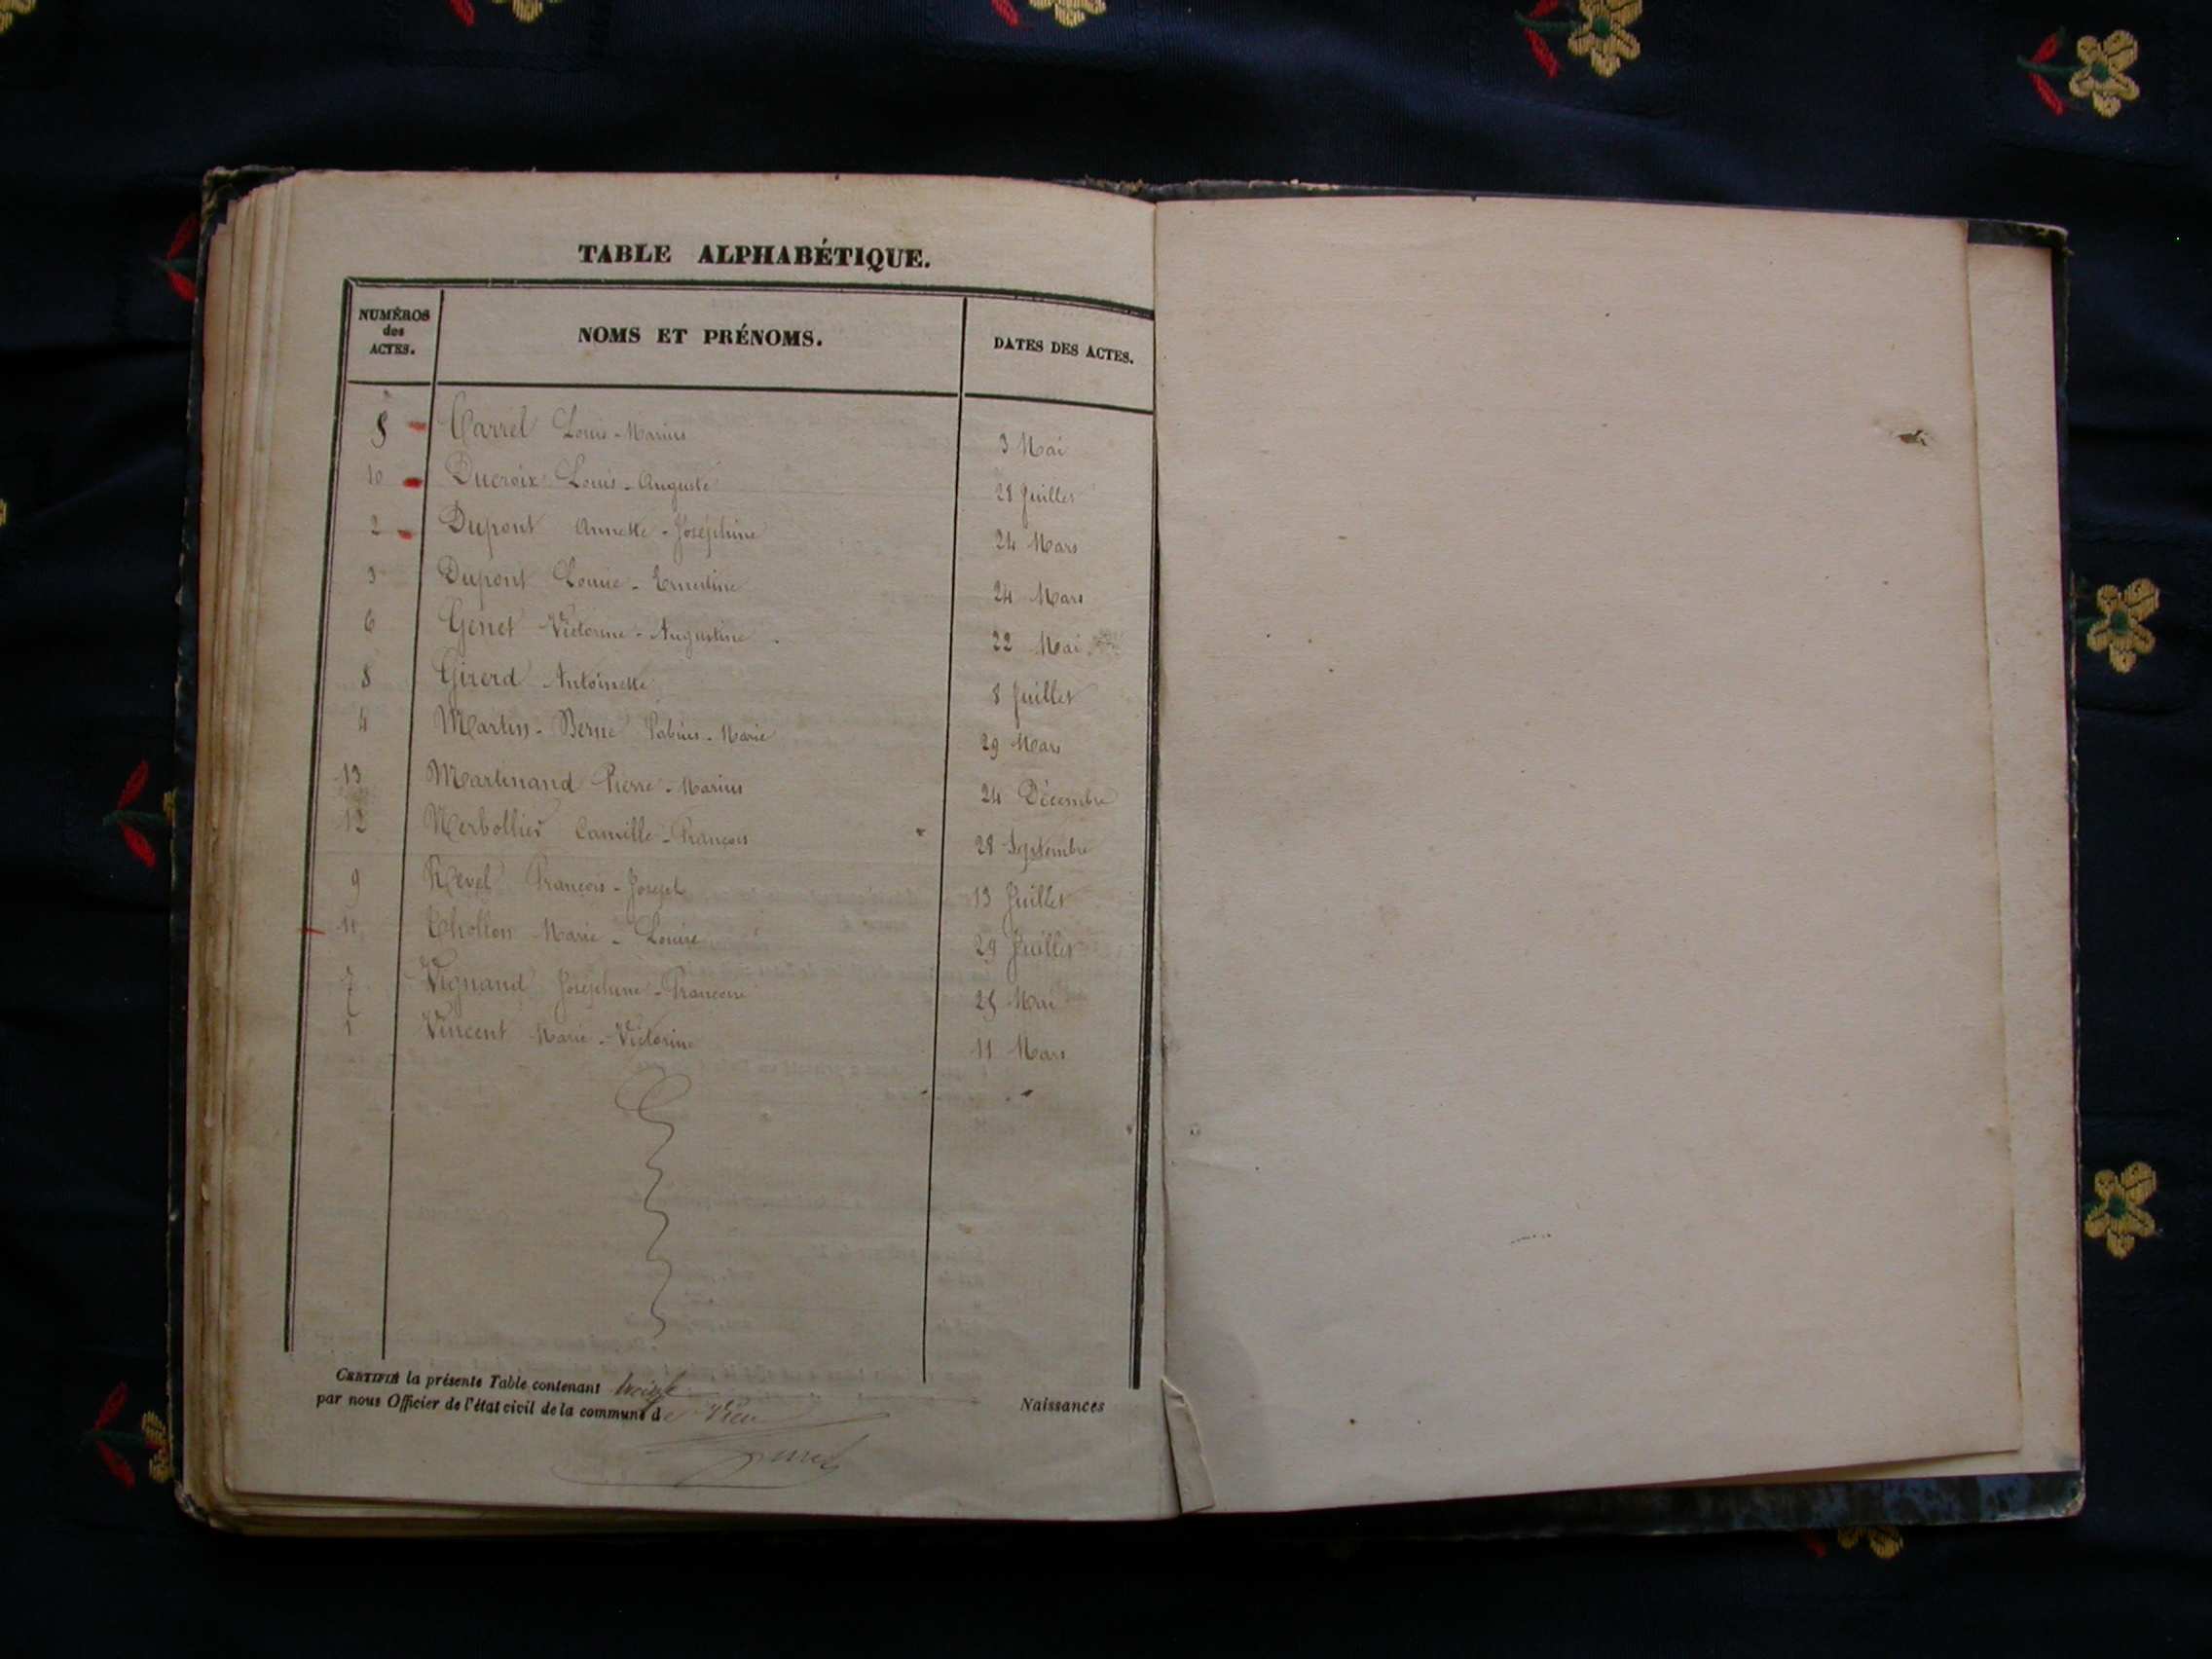 TABLE ALPHABÉTIQUE.
NUMÉROS des ACTES. NOMS ET PRÉNOMS. DATES DES ACTES.
Carrel Louis-Marius 3 Mai
10 Ducroix Louis-Auguste 28 Juillet
2 Dupont Annette-Joséphine 24 Mars
3 Dupont Louise-Ernestine 24 Mars
6 Genet Victorine-Augustine 22 Mai
8 Girerd Antoinette 8 Juillet
4 Martin-Berne Marie 29 Mars
13 Martinand Pierre-Marius 24 Décembre
12 Nerbollier Camille-François 28 Septembre
9 Revel François-Joseph 13 Juillet
11 Thollon Marie-Louise 29 Juillet
7 Vignand Joséphine-Françoise 25 Mai
1 Vincent Marie-Victorine 11 Mars
CERTIFIÉ la présente Table contenant treize
par nous Officier de l'état civil de la commune de Vieu
Naissances